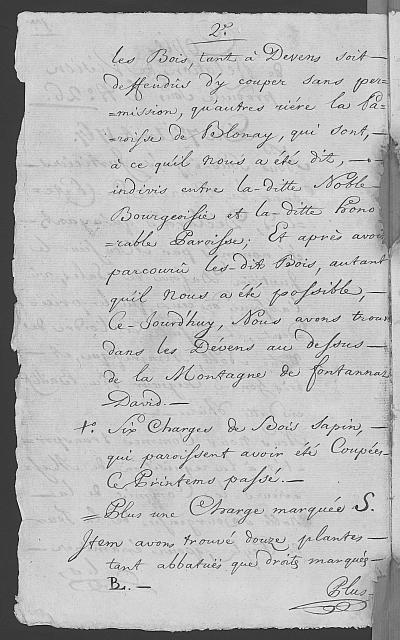 2.º
les Bois, tant à Devens soit
deffendûs d'y couper sans per=
=mission, qu'autres riére la Pa=
roisse de Blonay, qui sont,
à ce qu'il nous a été dit, —
indivis entre la-ditte Noble
Bourgeoisie et la-ditte hono
rable Paroisse; Et après avoir
parcouru les-dit Bois, autant
qu'il nous a été possible, —
Ce-Jourd'huy, Nous avons trouv
dans les Dévens au dessus —
de la Montagne de fontannaz
David. —
1.º Six Charges de Bois sapin,
qui paroissent avoir été Coupées
Ce Printems passé. —
= Plus une Charge marquée S.
Item avons trouvé douze plantes
tant abbatuës que droits marqués
B. —
Plus